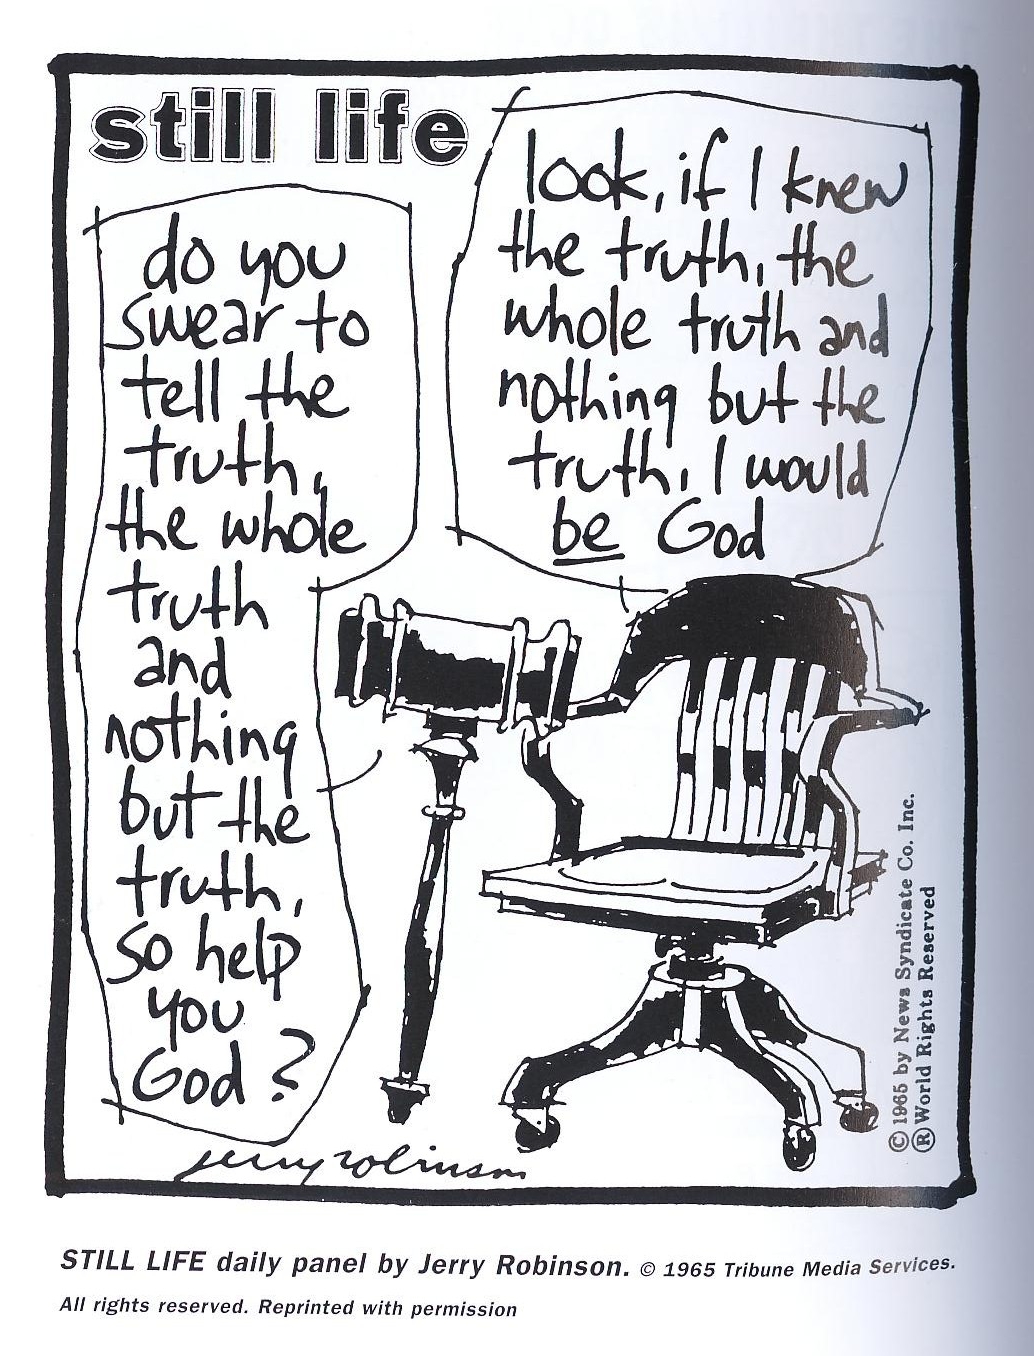 still life
do you
swear to
tell the
truth,
the whole
truth
and
nothing
but the
truth,
so help
you
God?
look, if I knew
the truth, the
whole truth and
nothing but the
truth, I would
be God
jerry robinson
© 1965 by News Syndicate Co. Inc.
Ⓡ World Rights Reserved
STILL LIFE daily panel by Jerry Robinson. © 1965 Tribune Media Services.
All rights reserved. Reprinted with permission